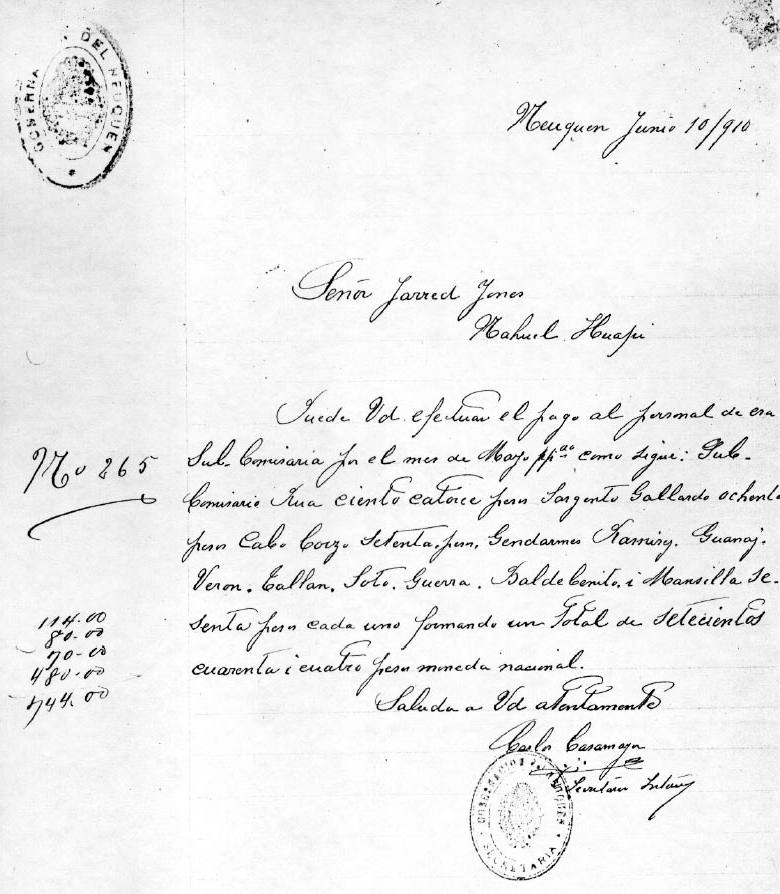 GOBERNA DEL NEUQUEN
Neuquen Junio 10/910
Señor Jarred Jones
Nahuel Huapi
Puede Vd. efectuar el pago al personal de esa
No 265
Sub-Comisaria por el mes de Mayo pp.do como sigue: Sub-
Comisario Rua ciento catorce pesos Sargento Gallardo ochenta
pesos Cabo Corzo Setenta pesos, Gendarmes Ramirez. Guanaj.
Veron. Tallan. Soto. Guerra. Baldebenito. i Mansilla se-
senta pesos cada uno formando un Total de setecientos
cuarenta i cuatro pesos moneda nacional.
114.00
80.00
70.00
480.00
744.00
Saluda a Vd atentamente
Carlos Casamayor
Secretario
SECRETARIA